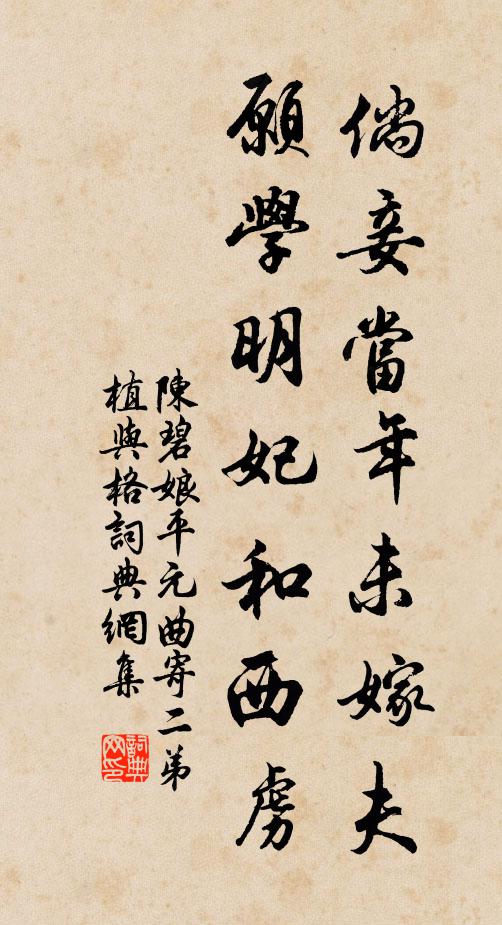 倘妾當年未嫁夫
願學明妃和西虜
陳碧娘平元曲寄二弟
植與格詞典網集
詞典网印